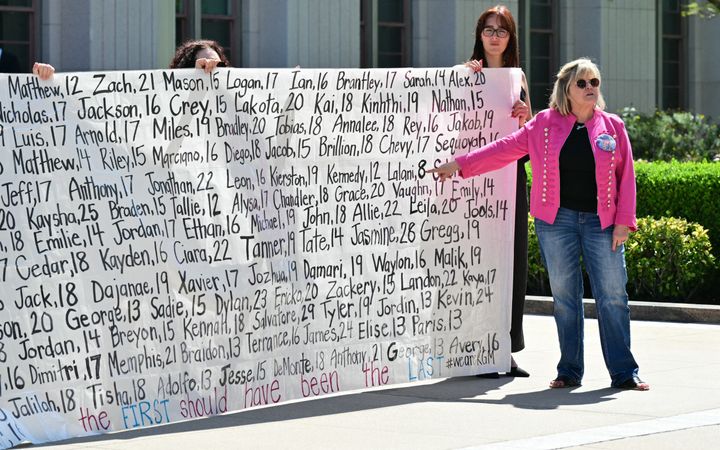 Matthew, 12 Zach, 21 Mason, 16 Logan, 17 Ian, 16 Brantley, 17 Sarah, 14 Alex,
Nicholas, 17 Jackson, 16 Crey, 15 Lakota, 20 Kai, 18 Kinhthi, 19 Nathan, 15
Luis, 17 Arnold, 17 Miles, 19 Bradley, 20 Tobias, 18 Annalee, 18 Rey, 16 Jakob, 19
Matthew, 14 Riley, 15 Marciano, 16 Diego, 18 Jacob, 15 Brillion, 18 Chevy, 17 Sequoyah, 16
Jeff, 17 Anthony, 17 Jonathan, 22 Leon, 16 Kierston, 19 Kennedy, 12 Lalani, 8
20 Kaysha, 25 Braden, 15 Tallie, 12 Alysa, 17 Chandler, 18 Grace, 20 Vaughn, 17 Emily, 14
18 Emilie, 14 Jordan, 17 Ethan, 16 Michael, 19 John, 18 Allie, 22 Leila, 20 Jools, 14
17 Cedar, 18 Kayden, 16 Ciara, 22 Tanner, 19 Tate, 14 Jasmine, 28 Gregg, 19
Jack, 18 Dajanae, 19 Xavier, 17 Jozhua, 19 Damari, 19 Waylon, 16 Malik, 19
20 George, 13 Sadie, 15 Dylan, 23 Ericko, 20 Zackery, 15 Landon, 22 Kaya, 17
18 Jordan, 14 Breyon, 15 Kennah, 18 Salvatore, 29 Tyler, 19 Jordin, 13 Kevin, 24
Dimitri, 17 Memphis, 21 Braidon, 13 Terrance, 16 James, 24 Elise, 13 Paris, 13
Jalilah, 18 Tisha, 18 Adolfo, 13 Jesse, 15 DeMonte, 18 Anthony, 21 George, 13 Avery, 16
the FIRST should have been the LAST #weareKGM